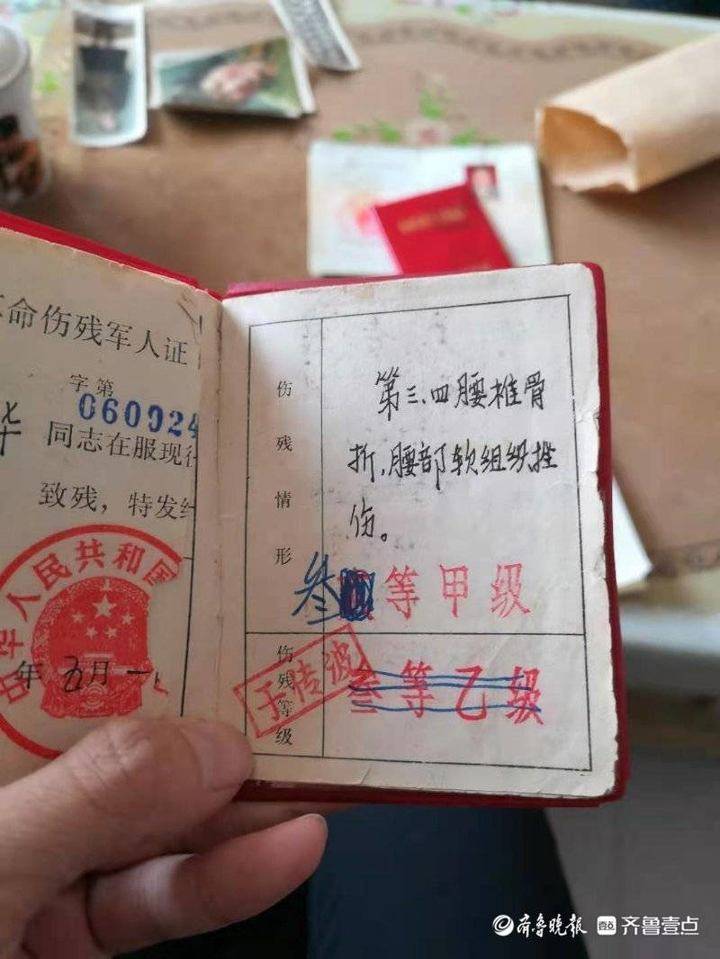 命伤残军人证
字第
060024
华 同志在服现
致残，特发
中华人民共和国
年五月一
伤残情形
第三、四腰椎骨
折，腰部软组织挫
伤。
叁等甲级
伤残等级
叁等乙级
齐鲁晚报 齐鲁壹点